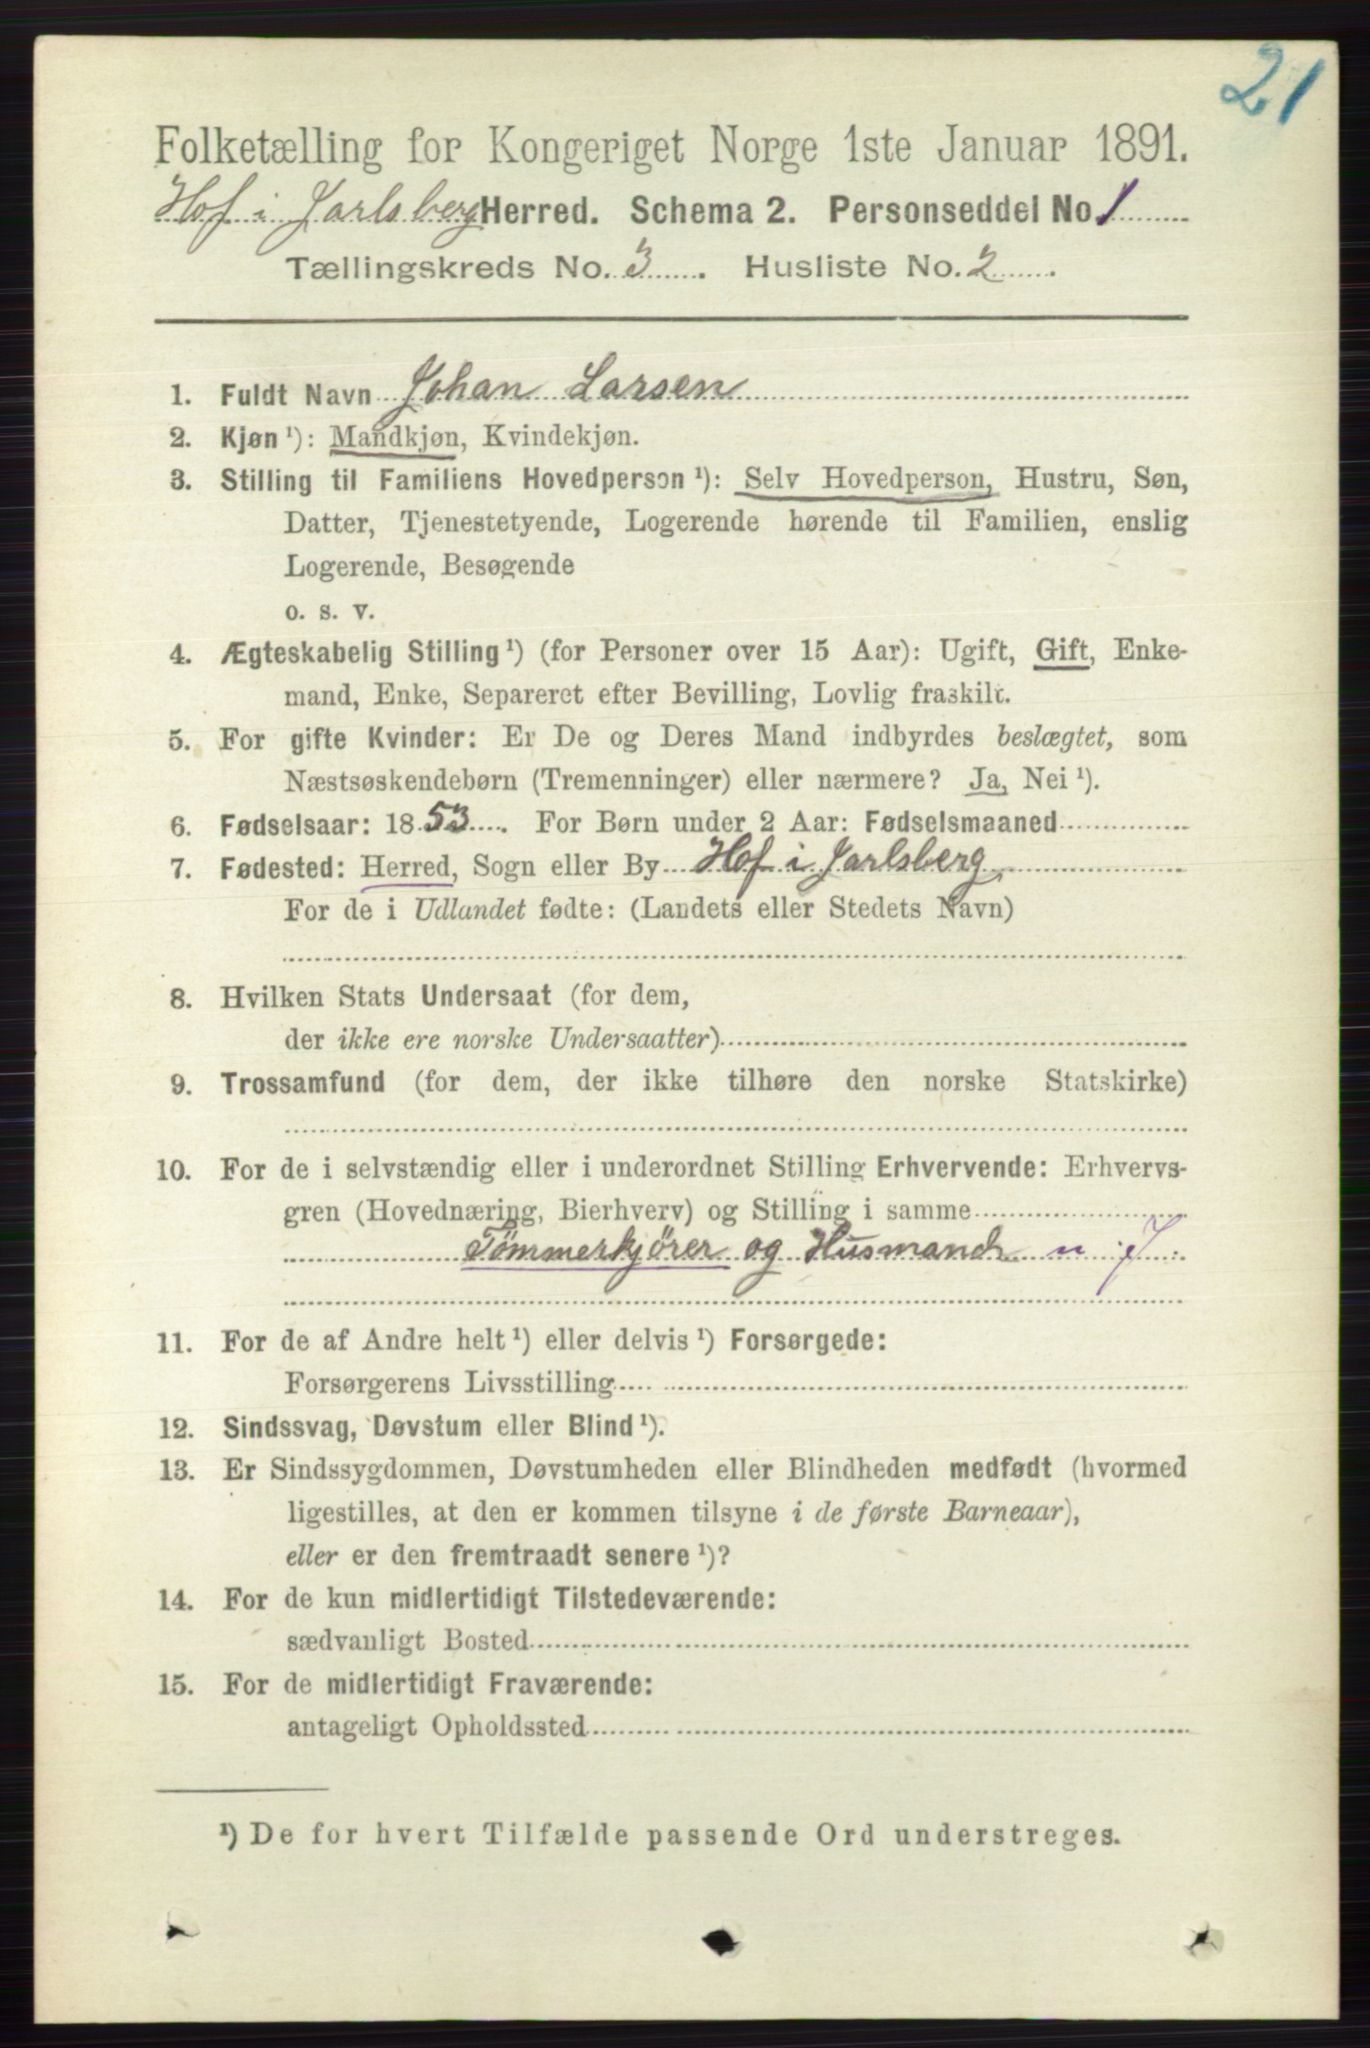 21
Folketælling for Kongeriget Norge 1ste Januar 1891.
Hof i Jarlsberg Herred. Schema 2. Personseddel No. 1
Tællingskreds No. 3. Husliste No. 2.
1. Fuldt Navn Johan Larsen
2. Kjøn ¹): Mandkjøn, Kvindekjøn.
3. Stilling til Familiens Hovedperson ¹): Selv Hovedperson, Hustru, Søn,
Datter, Tjenestetyende, Logerende hørende til Familien, enslig
Logerende, Besøgende
o. s. v.
4. Ægteskabelig Stilling ¹) (for Personer over 15 Aar): Ugift, Gift, Enke-
mand, Enke, Separeret efter Bevilling, Lovlig fraskilt.
5. For gifte Kvinder: Er De og Deres Mand indbyrdes beslægtet, som
Næstsøskendebørn (Tremenninger) eller nærmere? Ja, Nei ¹).
6. Fødselsaar: 1853. For Børn under 2 Aar: Fødselsmaaned
7. Fødested: Herred, Sogn eller By Hof i Jarlsberg
For de i Udlandet fødte: (Landets eller Stedets Navn)
8. Hvilken Stats Undersaat (for dem,
der ikke ere norske Undersaatter)
9. Trossamfund (for dem, der ikke tilhøre den norske Statskirke)
10. For de i selvstændig eller i underordnet Stilling Erhvervende: Erhvervs-
gren (Hovednæring, Bierhverv) og Stilling i samme
Tömmerkjörer og Husmand u. J.
11. For de af Andre helt ¹) eller delvis ¹) Forsørgede:
Forsørgerens Livsstilling
12. Sindssvag, Døvstum eller Blind ¹).
13. Er Sindssygdommen, Døvstumheden eller Blindheden medfødt (hvormed
ligestilles, at den er kommen tilsyne i de første Barneaar),
eller er den fremtraadt senere ¹)?
14. For de kun midlertidigt Tilstedeværende:
sædvanligt Bosted
15. For de midlertidigt Fraværende:
antageligt Opholdssted
¹) De for hvert Tilfælde passende Ord understreges.